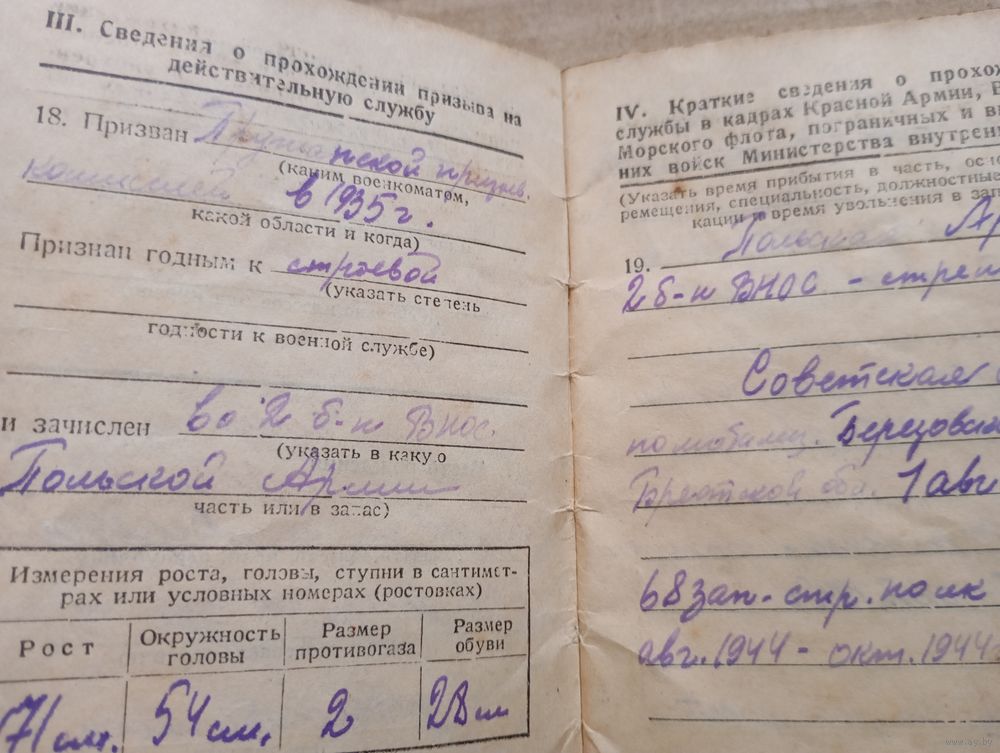 III. Сведения о прохождении призыва на
действительную службу
18. Призван Пружанской призыв.
(каким военкоматом,
комиссией в 1935 г.
какой области и когда)
Признан годным к строевой
(указать степень
годности к военной службе)
и зачислен во 2 б-н ВНОС
(указать в какую
Польской Армии
часть или в запас)
Измерения роста, головы, ступни в сантимет-
рах или условных номерах (ростовках)
Рост
Окружность
головы
Размер
противогаза
Размер
обуви
171 см. 54 см. 2 28 см
IV. Краткие сведения о прохож
службы в кадрах Красной Армии, В
Морского флота, пограничных и в
них войск Министерства внутрен
(Указать время прибытия в часть, осно
ремещения, специальность, должностные
кации и время увольнения в зап
19. Польская Ар
2 б-н ВНОС – стрел
Советская
по мобилиз. Березовск
Брестской обл. 1 авг
68 зап. стр. полк
авг. 1944 – окт. 1944
www.ay.by